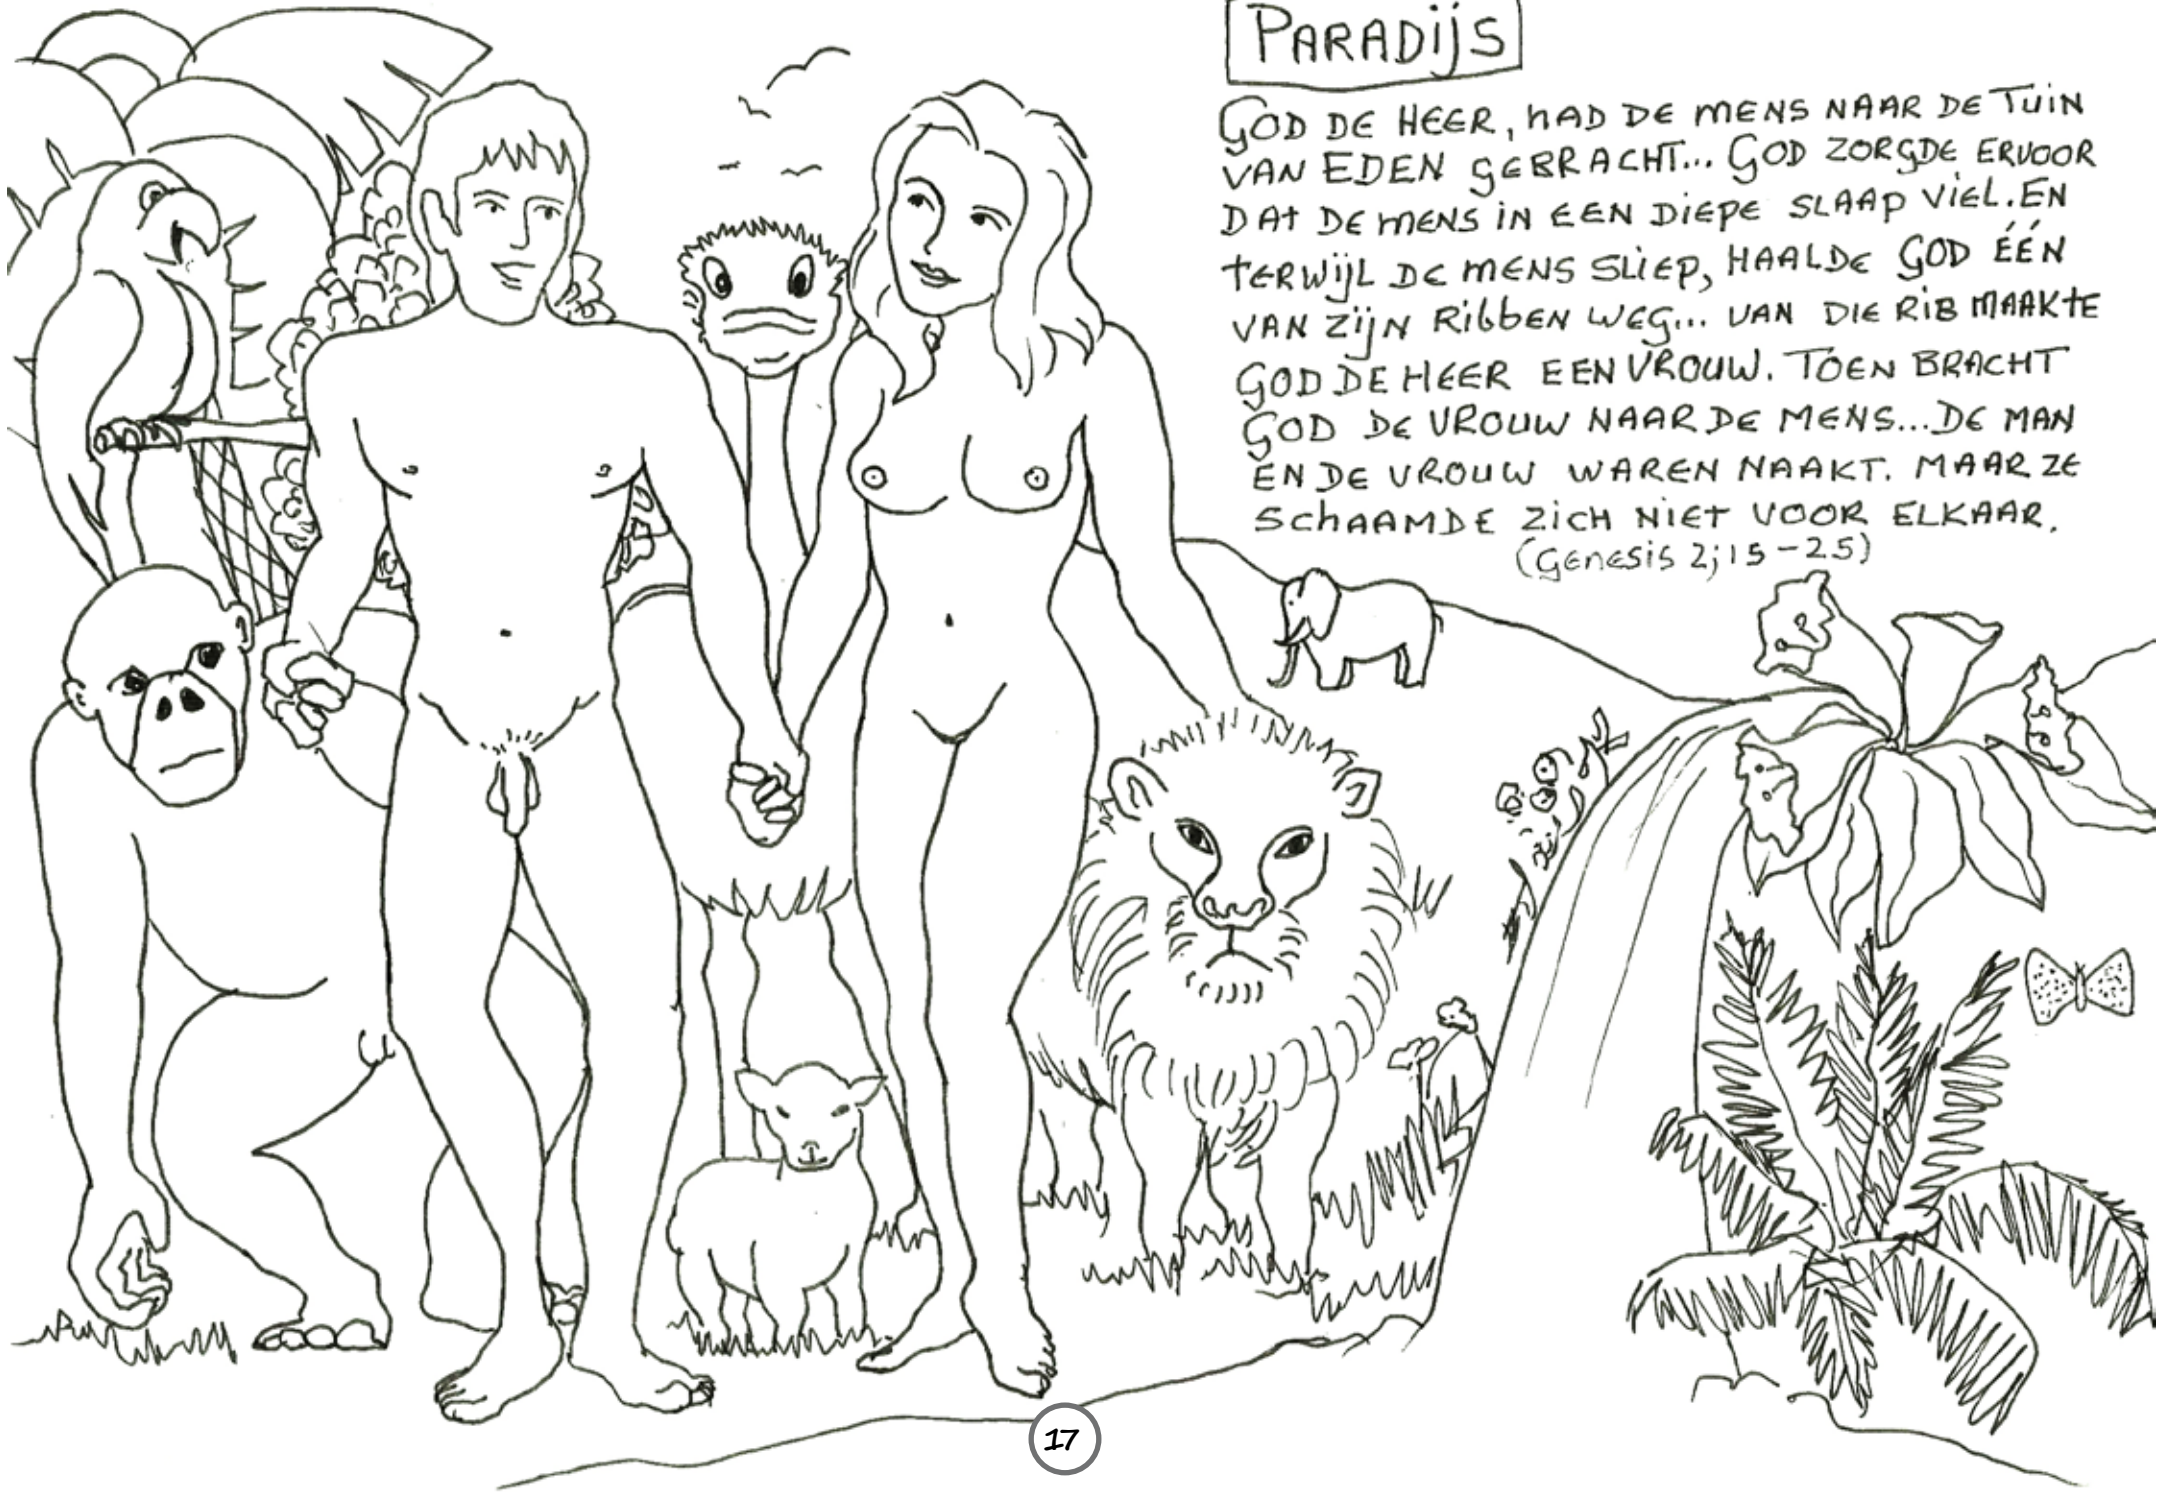 PARADIJS
GOD DE HEER, HAD DE MENS NAAR DE TUIN
VAN EDEN GEBRACHT... GOD ZORGDE ERVOOR
DAT DE MENS IN EEN DIEPE SLAAP VIEL. EN
TERWIJL DE MENS SLIEP, HAALDE GOD ÉÉN
VAN ZIJN RIBBEN WEG... VAN DIE RIB MAAKTE
GOD DE HEER EEN VROUW. TOEN BRACHT
GOD DE VROUW NAAR DE MENS... DE MAN
EN DE VROUW WAREN NAAKT. MAAR ZE
SCHAAMDE ZICH NIET VOOR ELKAAR.
(Genesis 2;15-25)
17